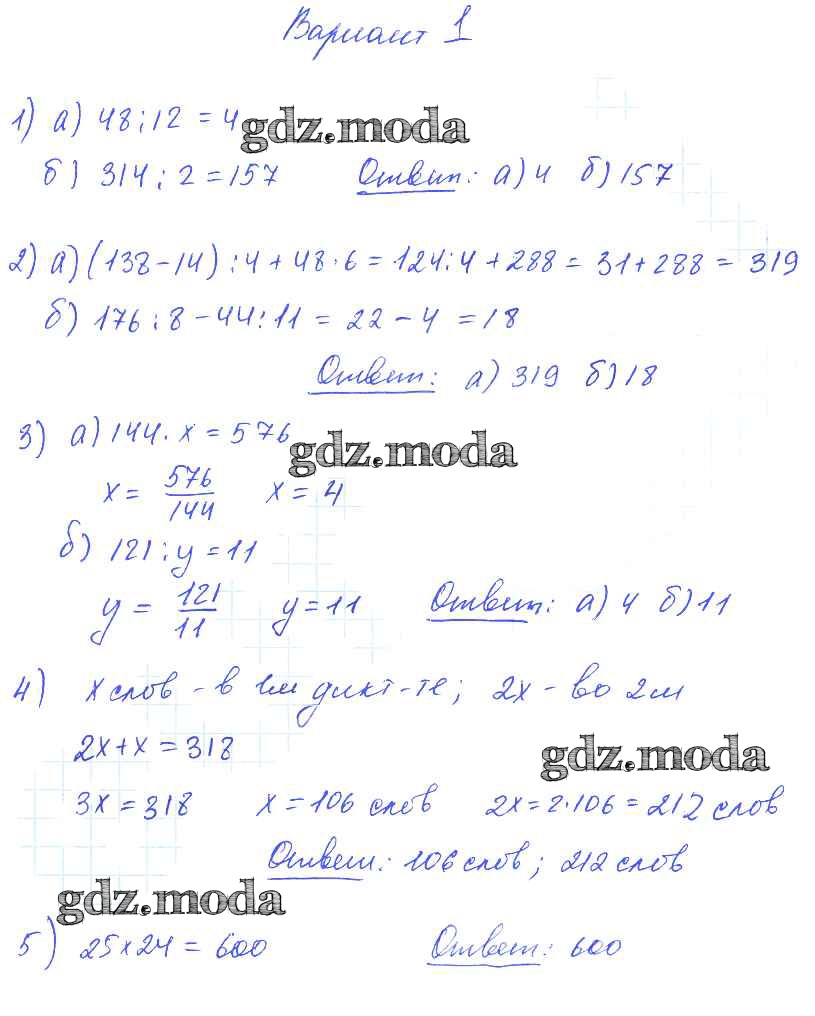 Вариант 1
1) а) 48 : 12 = 4
gdz.moda
б) 314 : 2 = 157 Ответ: а) 4 б) 157
2) а) (138 - 14) : 4 + 48 · 6 = 124 : 4 + 288 = 31 + 288 = 319
б) 176 : 8 - 44 : 11 = 22 - 4 = 18
Ответ: а) 319 б) 18
3) а) 144 · x = 576
gdz.moda
x = 576/144 x = 4
б) 121 : y = 11
y = 121/11 y = 11 Ответ: а) 4 б) 11
4) x слов - в 1м дикт-те; 2x - во 2м
2x + x = 318
gdz.moda
3x = 318 x = 106 слов 2x = 2 · 106 = 212 слов
Ответ: 106 слов; 212 слов
gdz.moda
5) 25 × 24 = 600 Ответ: 600